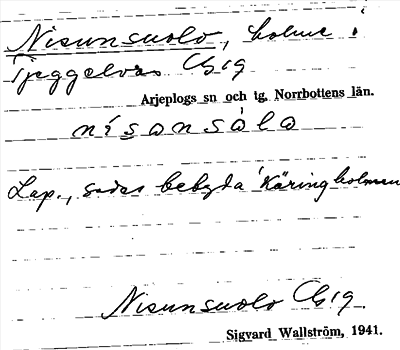 Nisunsuolo, holme i
Tjeggelvas Cb 19
Arjeplogs sn och tg, Norrbottens län.
nísɑnsὰlɑ
Lap., sades betyda 'Käringholmen
Nisunsuolo Cb 19.
Sigvard Wallström, 1941.